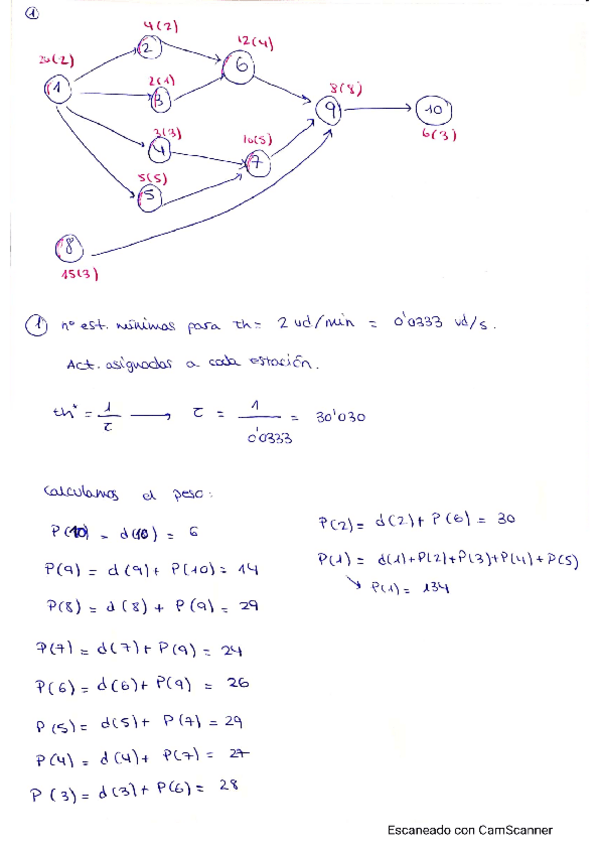 1
4(2)
12(4)
2
20(2)
6
2(1)
8(8)
1
3
9
10
3(3)
10(5)
6(3)
4
7
5(5)
5
8
15(3)
1 nº est. mínimas para th = 2 ud/min = 0'0333 ud/s.
Act. asignadas a cada estación.
th* = 1/τ → τ = 1/0'0333 = 30'030
Calculamos el peso:
P(10) = d(10) = 6
P(9) = d(9) + P(10) = 14
P(8) = d(8) + P(9) = 29
P(7) = d(7) + P(9) = 24
P(6) = d(6) + P(9) = 26
P(5) = d(5) + P(7) = 29
P(4) = d(4) + P(7) = 27
P(3) = d(3) + P(6) = 28
P(2) = d(2) + P(6) = 30
P(1) = d(1) + P(2) + P(3) + P(4) + P(5)
P(1) = 134
Escaneado con CamScanner